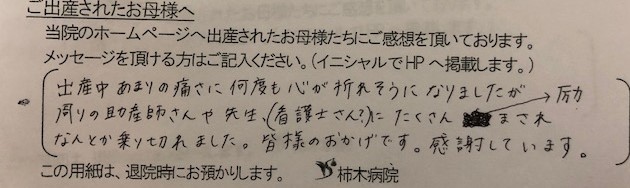 ご出産されたお母様へ
当院のホームページへ出産されたお母様たちにご感想を頂いております。
メッセージを頂ける方はご記入ください。(イニシャルでHPへ掲載します。)
出産中あまりの痛さに何度も心が折れそうになりましたが
周りの助産師さんや先生、(看護士さん?)にたくさん まされ → 励
なんとか乗り切れました。皆様のおかげです。感謝しています。
この用紙は、退院時にお預かりします。 柿木病院